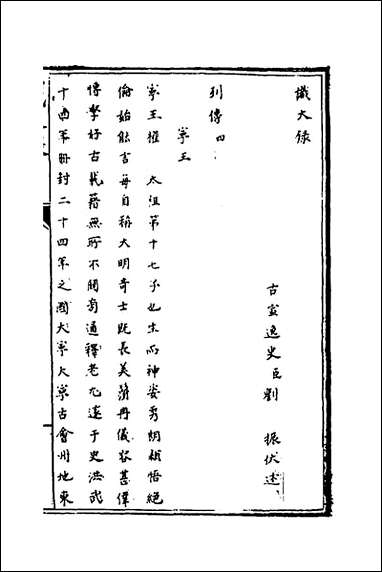 識大錄
古宣逸史臣劉 振伏述
列傳四
寧王
寧王權 太祖第十七子也生而神姿秀朗穎悟絕
倫始能言每自稱大明奇士既長美鬚冉儀容甚偉
博學好古載籍無所不闚旁通釋老尤邃于史洪武
十四年冊封二十四年之國大寧大寧古會州地東